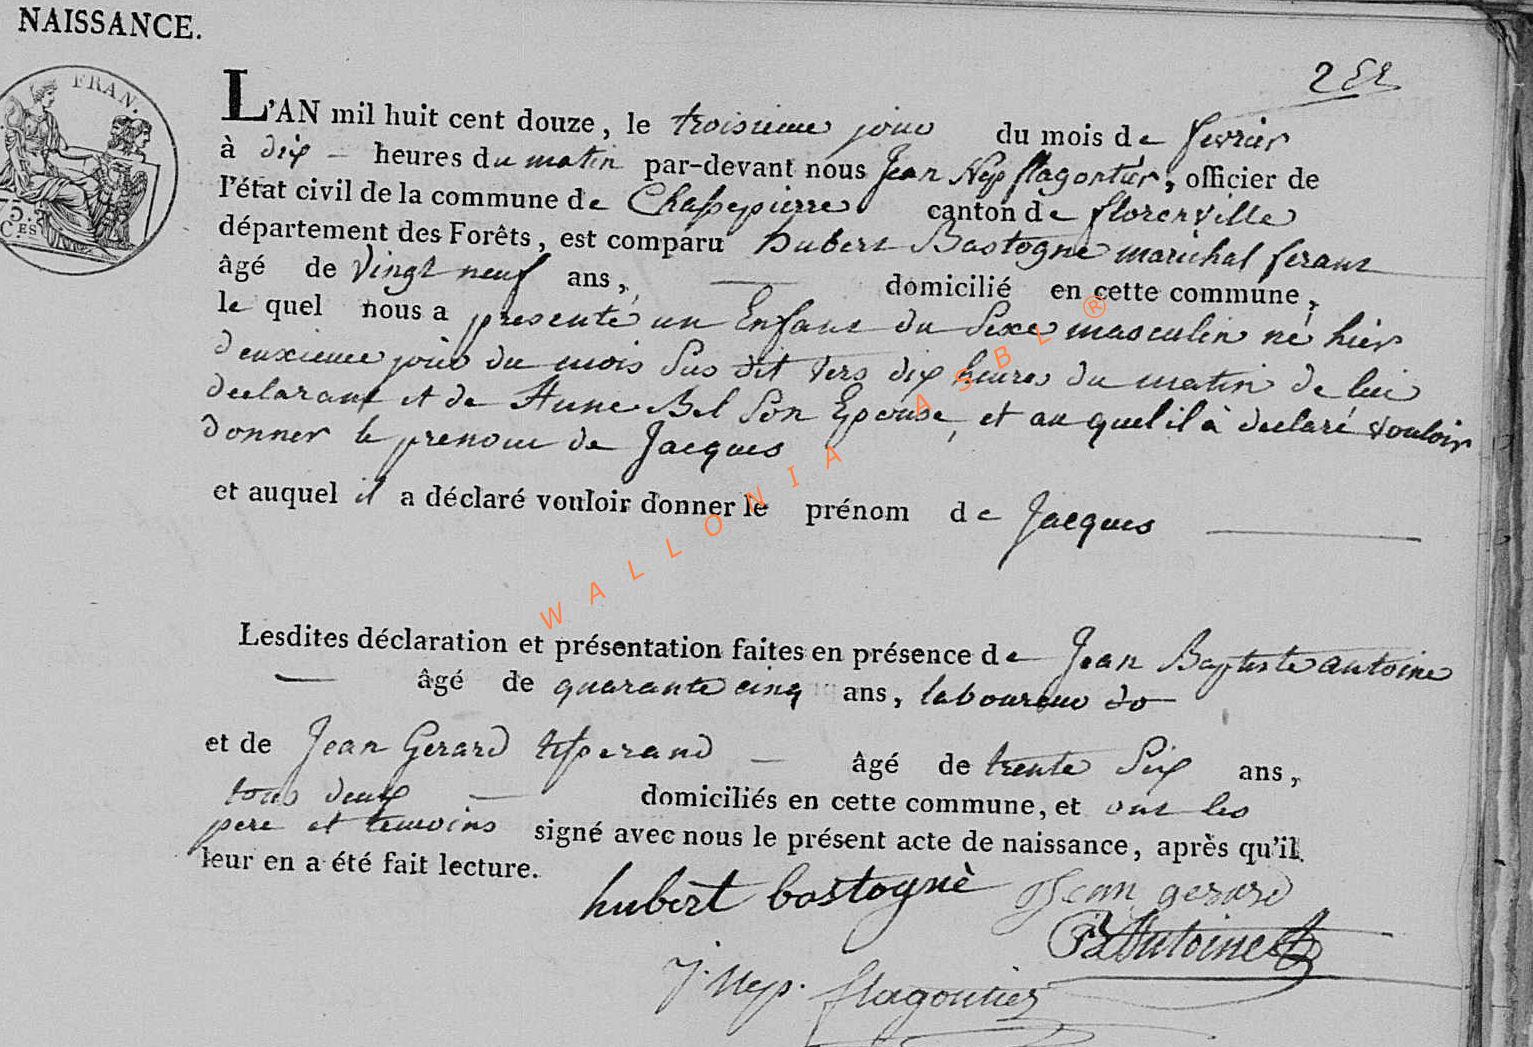 NAISSANCE.
FRAN.
75.
C.ES
L'AN mil huit cent douze, le troisieme jour du mois de fevrier
à dix heures du matin par-devant nous Jean Nep flagontier, officier de
l'état civil de la commune de Chassepierre canton de florenville
département des Forêts, est comparu hubert Bastogne marichal ferant
âgé de vingt neuf ans, domicilié en cette commune,
le quel nous a presenté un Enfant du Sexe masculin né hier
deuxieme jour du mois Sus dit vers dix heures du matin de lui
declarant et de Anne Bel Son Epouse, et au quel il à declaré vouloir
donner le prenom de Jacques
et auquel il a déclaré vouloir donner le prénom de Jacques
Lesdites déclaration et présentation faites en présence de Jean Baptiste antoine
âgé de quarante cinq ans, laboureur do
et de Jean Gerard âgé de trente Six ans,
tous deux domiciliés en cette commune, et ont les
pere et temoins signé avec nous le présent acte de naissance, après qu'il
leur en a été fait lecture.
hubert bastognè Jean gerard
Antoine
J. Nep. flagontier
WALLONIA ASBL ®